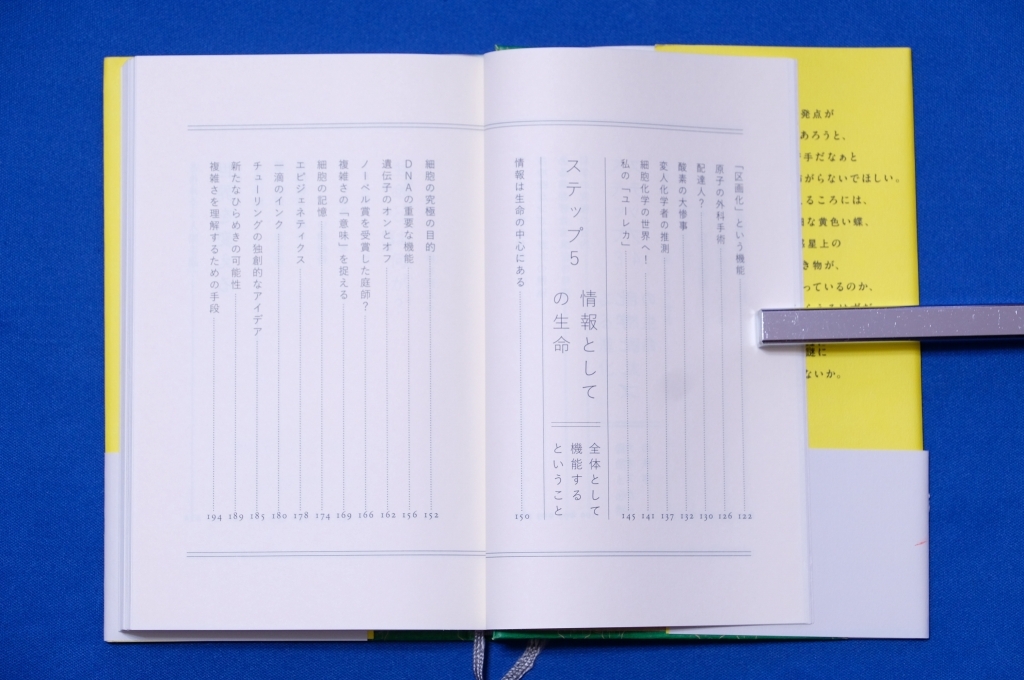 「区画化」という機能 122
原子の外科手術 126
配達人? 130
酸素の大惨事 132
変人化学者の推測 137
細胞化学の世界へ! 141
私の「ユーレカ」 145
ステップ5 情報として
の生命
全体として
機能する
ということ
情報は生命の中心にある 150
細胞の究極の目的 152
DNAの重要な機能 156
遺伝子のオンとオフ 162
ノーベル賞を受賞した庭師? 166
複雑さの「意味」を捉える 169
細胞の記憶 174
エピジェネティクス 178
一滴のインク 180
チューリングの独創的なアイデア 185
新たなひらめきの可能性 189
複雑さを理解するための手段 194
発点が
あろうと、
手だなぁと
がらないでほしい。
るころには、
な黄色い蝶、
星上の
き物が、
っているのか、
に
ないか。